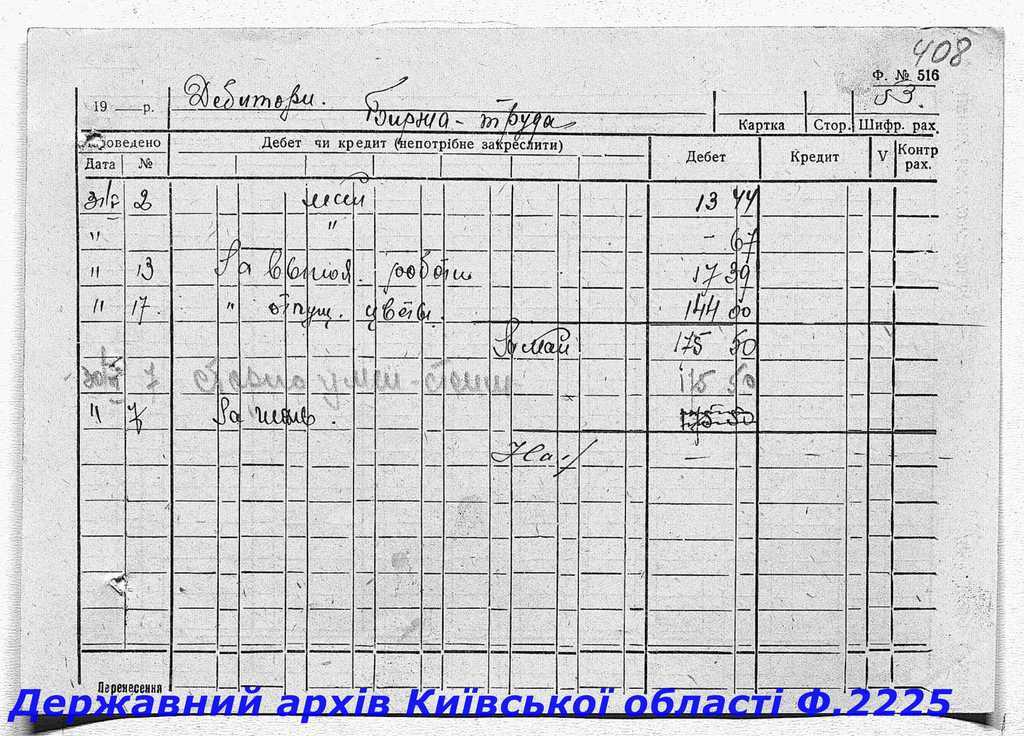 408
Ф. № 516
53.
19 р. Дебитори.
Биржа - труда
Картка Стор. Шифр. рах.
Проведено Дебет чи кредит (непотрібне закреслити) Дебет Кредит V Контр рах.
Дата №
2 13 44
" " - 67
" 13 За выпол. работы 17 39
" 17. " отпущ. цветы. 144 00
За май 175 50
30 7 Сторно 175 50
" 7 За июнь. 175 50
На 1/ — —
Перенесення
Державний архів Київської області Ф.2225